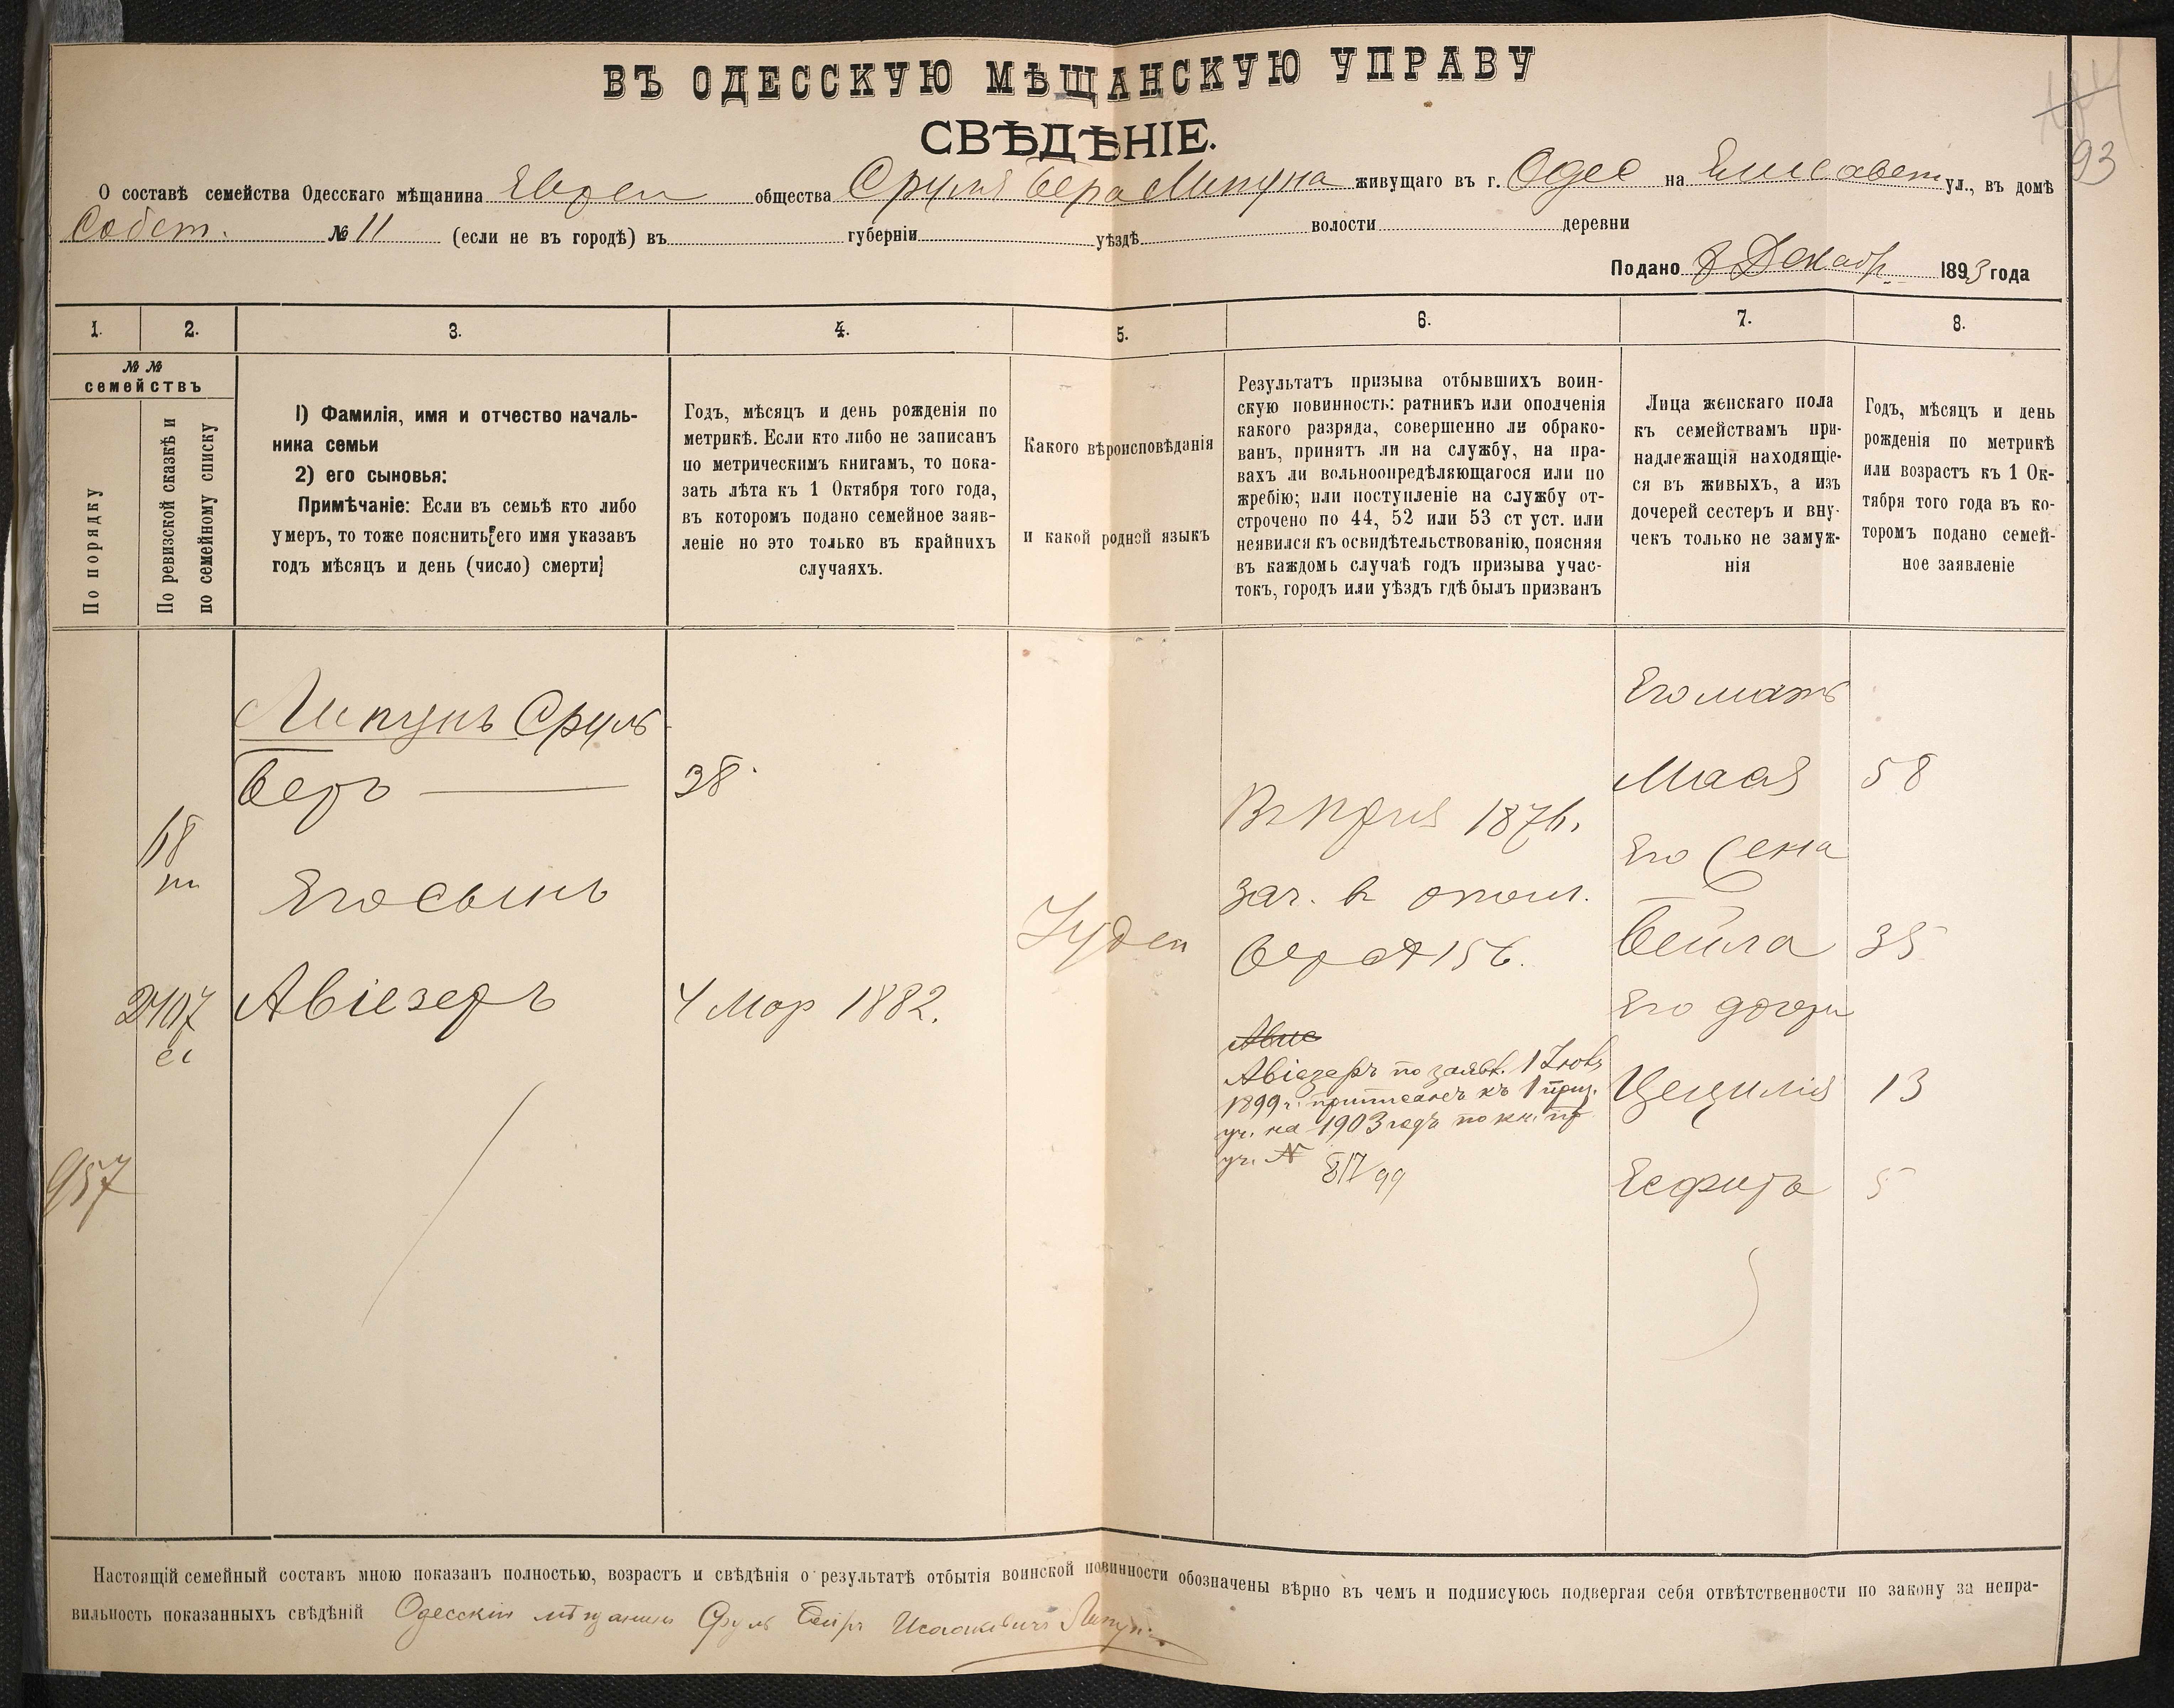 ВЪ ОДЕССКУЮ МѢЩАНСКУЮ УПРАВУ
СВѢДѢНІЕ.
93
О составѣ семейства Одесскаго мѣщанина Евреи общества Сруля Бера Липуна живущаго въ г. Одес на Елисавет ул., въ домѣ
Собст. № 11 (если не въ городѣ) въ губерніи уѣздѣ волости деревни
Подано 8 Декабр. 1893 года
1. 2. 3. 4. 5. 6. 7. 8.
№ №
семействъ
По порядку
По ревизской сказкѣ и
по семейному списку
1) Фамилія, имя и отчество началь-
ника семьи
2) его сыновья:
Примѣчаніе: Если въ семьѣ кто либо
умеръ, то тоже пояснить[его имя указавъ
годъ мѣсяцъ и день (число) смерти]
Годъ, мѣсяцъ и день рожденія по
метрикѣ. Если кто либо не записанъ
по метрическимъ книгамъ, то пока-
зать лѣта къ 1 Октября того года,
въ которомъ подано семейное заяв-
леніе но это только въ крайнихъ
случаяхъ.
Какого вѣроисповѣданія
и какой родной языкъ
Результатъ призыва отбывшихъ воин-
скую повинность: ратникъ или ополченія
какого разряда, совершенно ли обрако-
ванъ, принятъ ли на службу, на пра-
вахъ ли вольноопредѣляющагося или по
жребію; или поступленіе на службу от-
строчено по 44, 52 или 53 ст уст. или
неявился къ освидѣтельствованію, поясняя
въ каждомъ случаѣ годъ призыва учас-
токъ, городъ или уѣздъ гдѣ былъ призванъ
Лица женскаго пола
къ семействамъ при-
надлежащія находящіе-
ся въ живыхъ, а изъ
дочерей сестеръ и вну-
чекъ только не замуж-
нія
Годъ, мѣсяцъ и день
рожденія по метрикѣ
или возрастъ къ 1 Ок-
тября того года въ ко-
торомъ подано семей-
ное заявленіе
957
2407
Липунъ Сруль
Беръ — 38
Его сынъ
Авіезеръ 4 Мар 1882.
Іудей
1876.
зач. в ополч.
156.
Авіезеръ по заявл. 1
1899 г. приписанъ къ 1 приз.
уч. на 1903 годъ по кн. пр
уч. №
99
Его мать
Мася 58
Его Жена
Бейла 35
Его дочери
Цецилія 13
Есфирь 5
Настоящій семейный составъ мною показанъ полностью, возрастъ и свѣдѣнія о результатѣ отбытія воинской повинности обозначены вѣрно въ чемъ и подписуюсь подвергая себя отвѣтственности по закону за непра-
вильность показанныхъ свѣдѣній Одесскій мѣщанинъ Сруль Бейръ Исааковичъ Липунъ